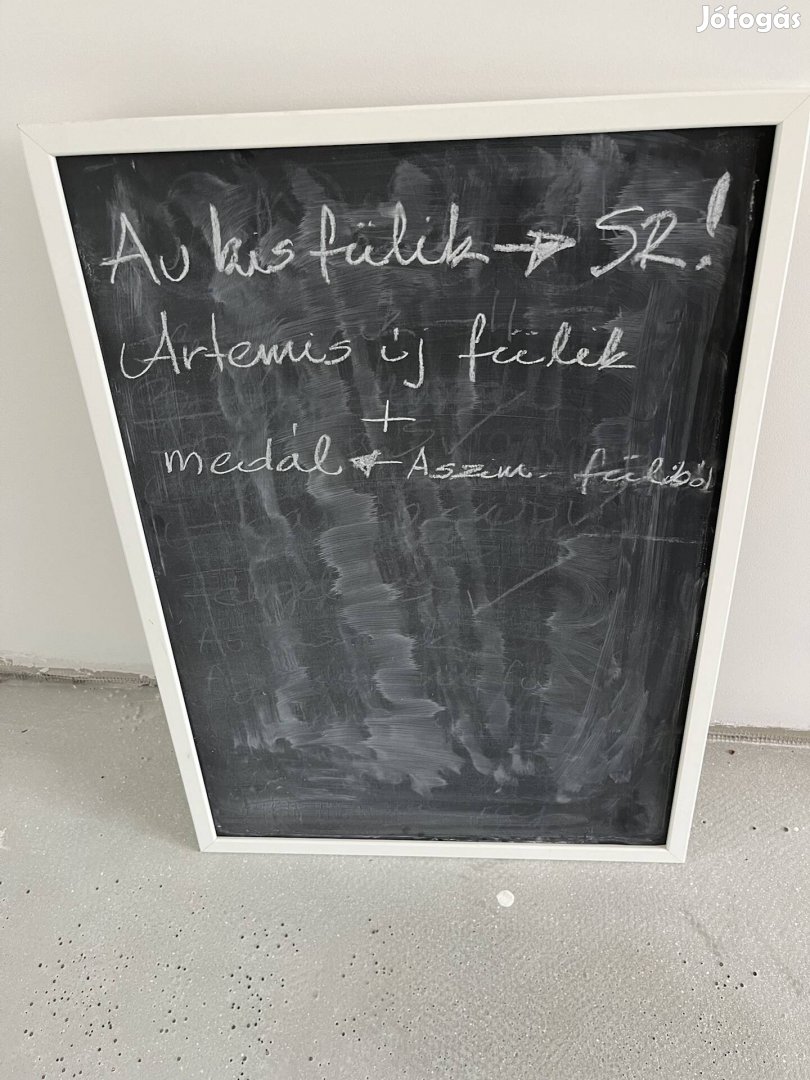 Jófogás
Au kis fülik → SR!
Artemis új fülik
+
medál ← Aszim. füliből